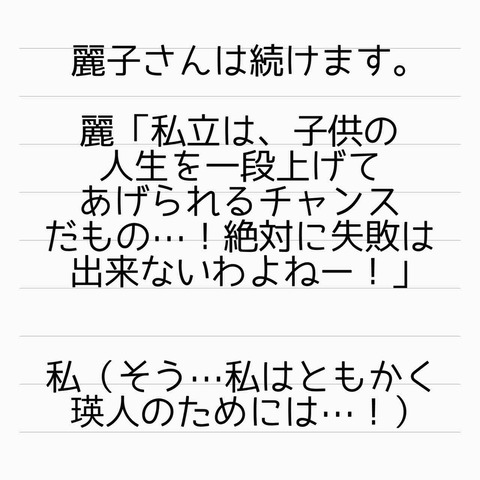 麗子さんは続けます。
麗「私立は、子供の
人生を一段上げて
あげられるチャンス
だもの…！絶対に失敗は
出来ないわよねー！」
私（そう…私はともかく
瑛人のためには…！）